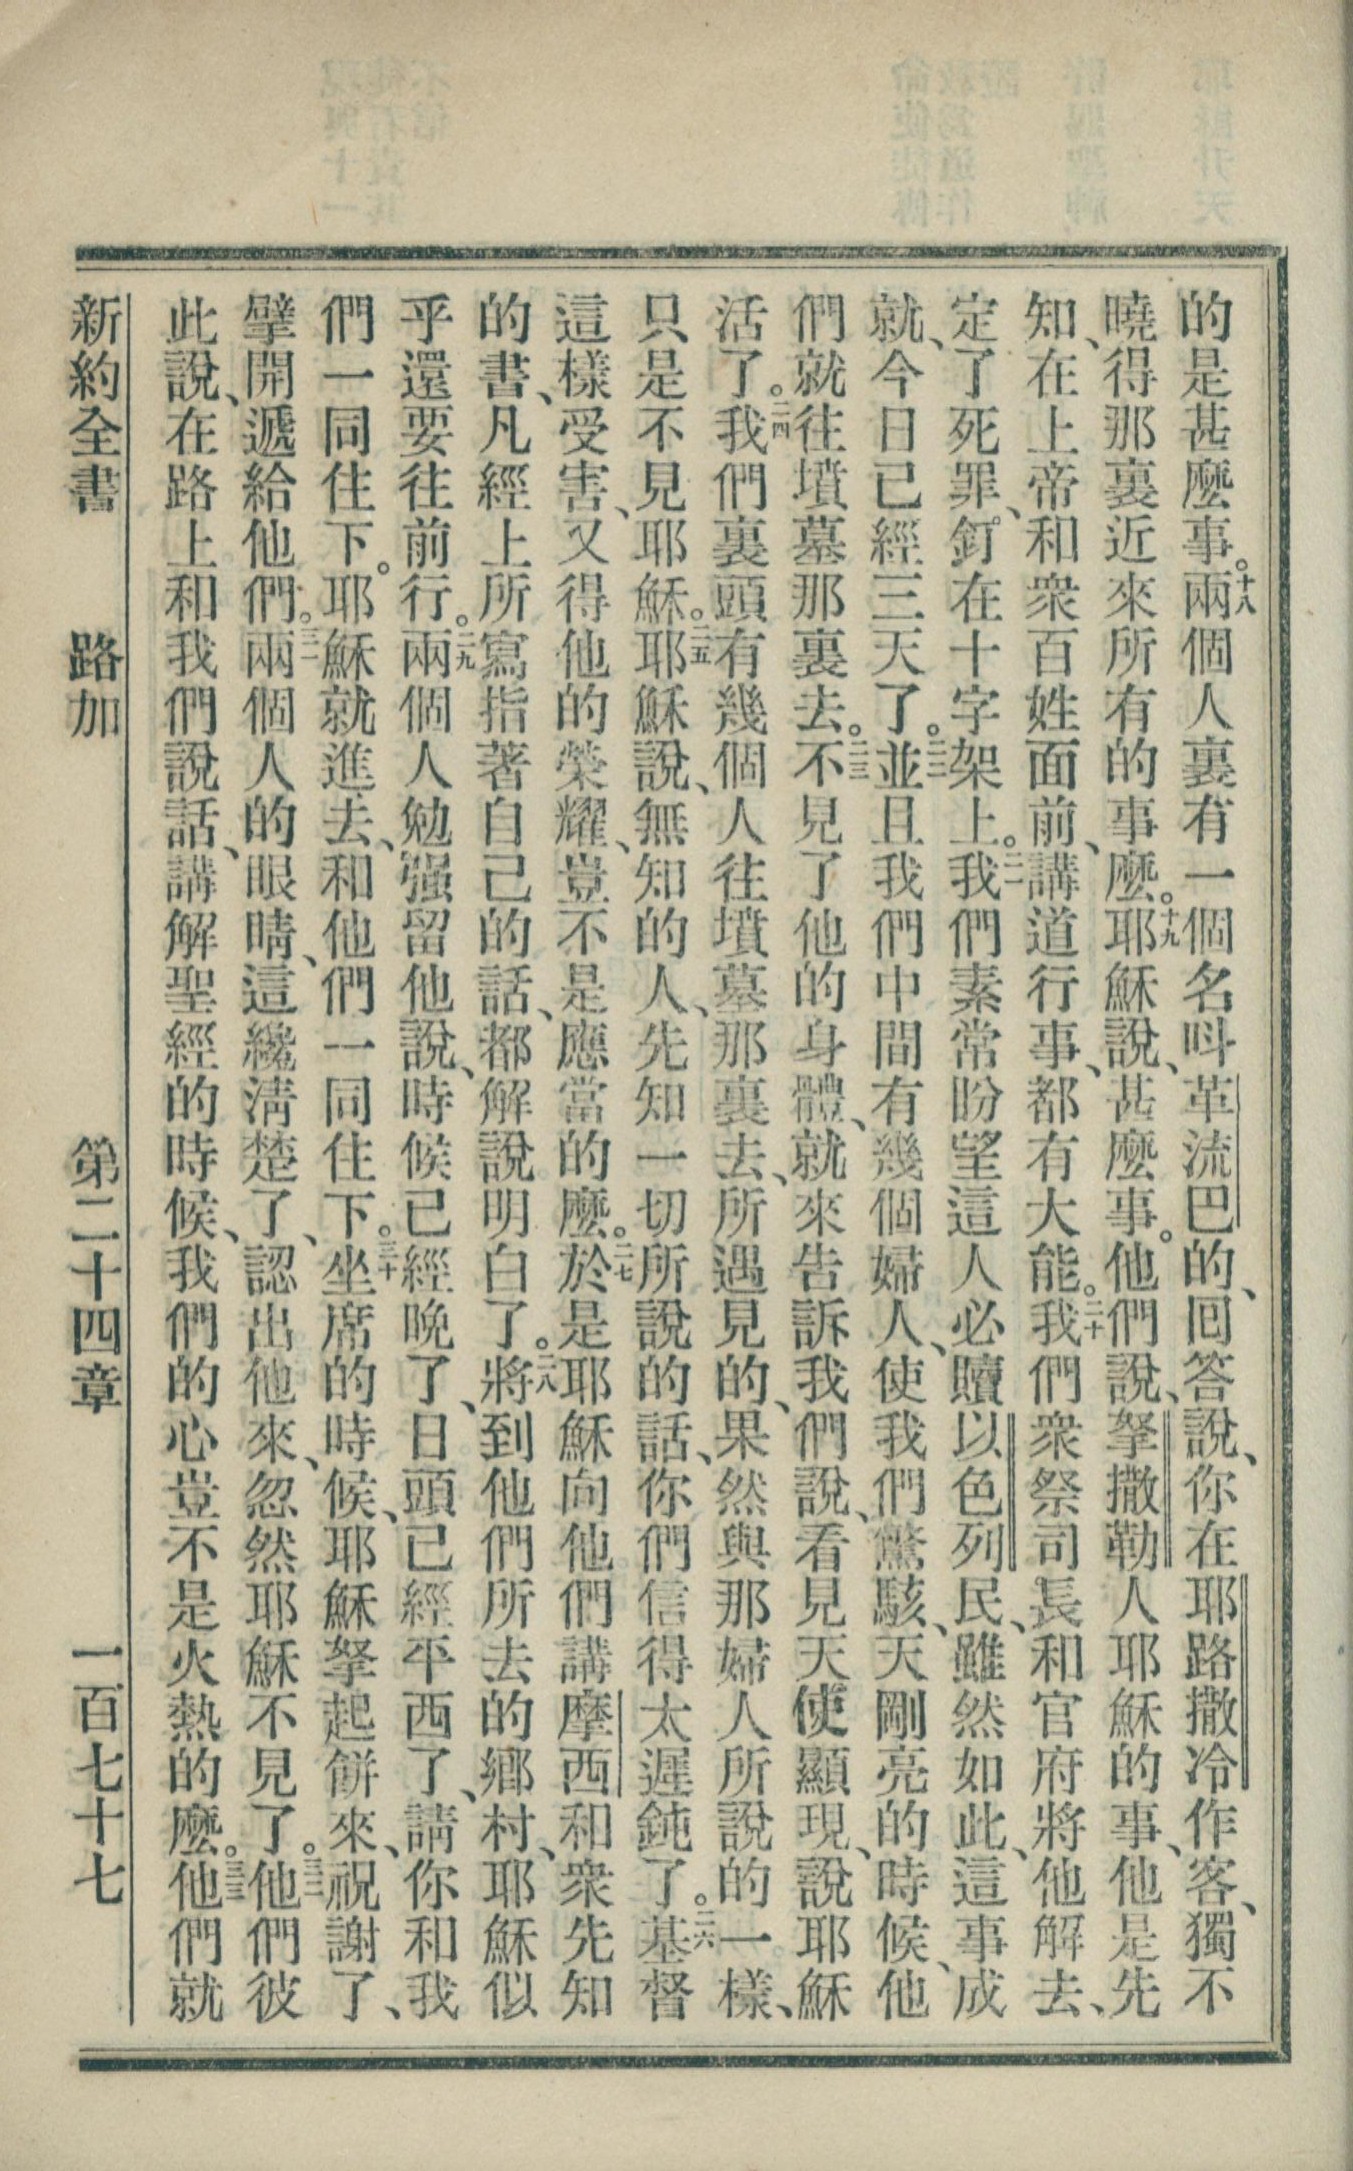 的是甚麼事。十八兩個人裏有一個名呌革流巴的、回答說、你在耶路撒冷作客、獨不
曉得那裏近來所有的事麼。十九耶穌說、甚麼事。他們說、拏撒勒人耶穌的事、他是先
知、在上帝和衆百姓面前、講道行事、都有大能。二十我們衆祭司長和官府將他解去、
定了死罪、釘在十字架上。二一我們素常盼望這人必贖以色列民、雖然如此、這事成
就、今日已經三天了。二二並且我們中間有幾個婦人、使我們驚駭、天剛亮的時候、他
們就往墳墓那裏去。二三不見了他的身體、就來告訴我們說、看見天使顯現、說耶穌
活了。二四我們裏頭有幾個人往墳墓那裏去、所遇見的、果然與那婦人所說的一樣、
只是不見耶穌。二五耶穌說、無知的人、先知一切所說的話、你們信得太遲鈍了。二六基督
這樣受害、又得他的榮耀、豈不是應當的麼。二七於是耶穌向他們講摩西和衆先知
的書、凡經上所寫指著自己的話、都解說明白了。二八將到他們所去的鄉村、耶穌似
乎還要往前行。二九兩個人勉强留他說、時候已經晚了、日頭已經平西了、請你和我
們一同住下。耶穌就進去、和他們一同住下。三十坐席的時候、耶穌拏起餅來、祝謝了、
擘開遞給他們。三一兩個人的眼睛、這纔清楚了、認出他來、忽然耶穌不見了。三二他們彼
此說、在路上和我們說話、講解聖經的時候、我們的心豈不是火熱的麼。三三他們就
新約全書 路加 第二十四章 一百七十七